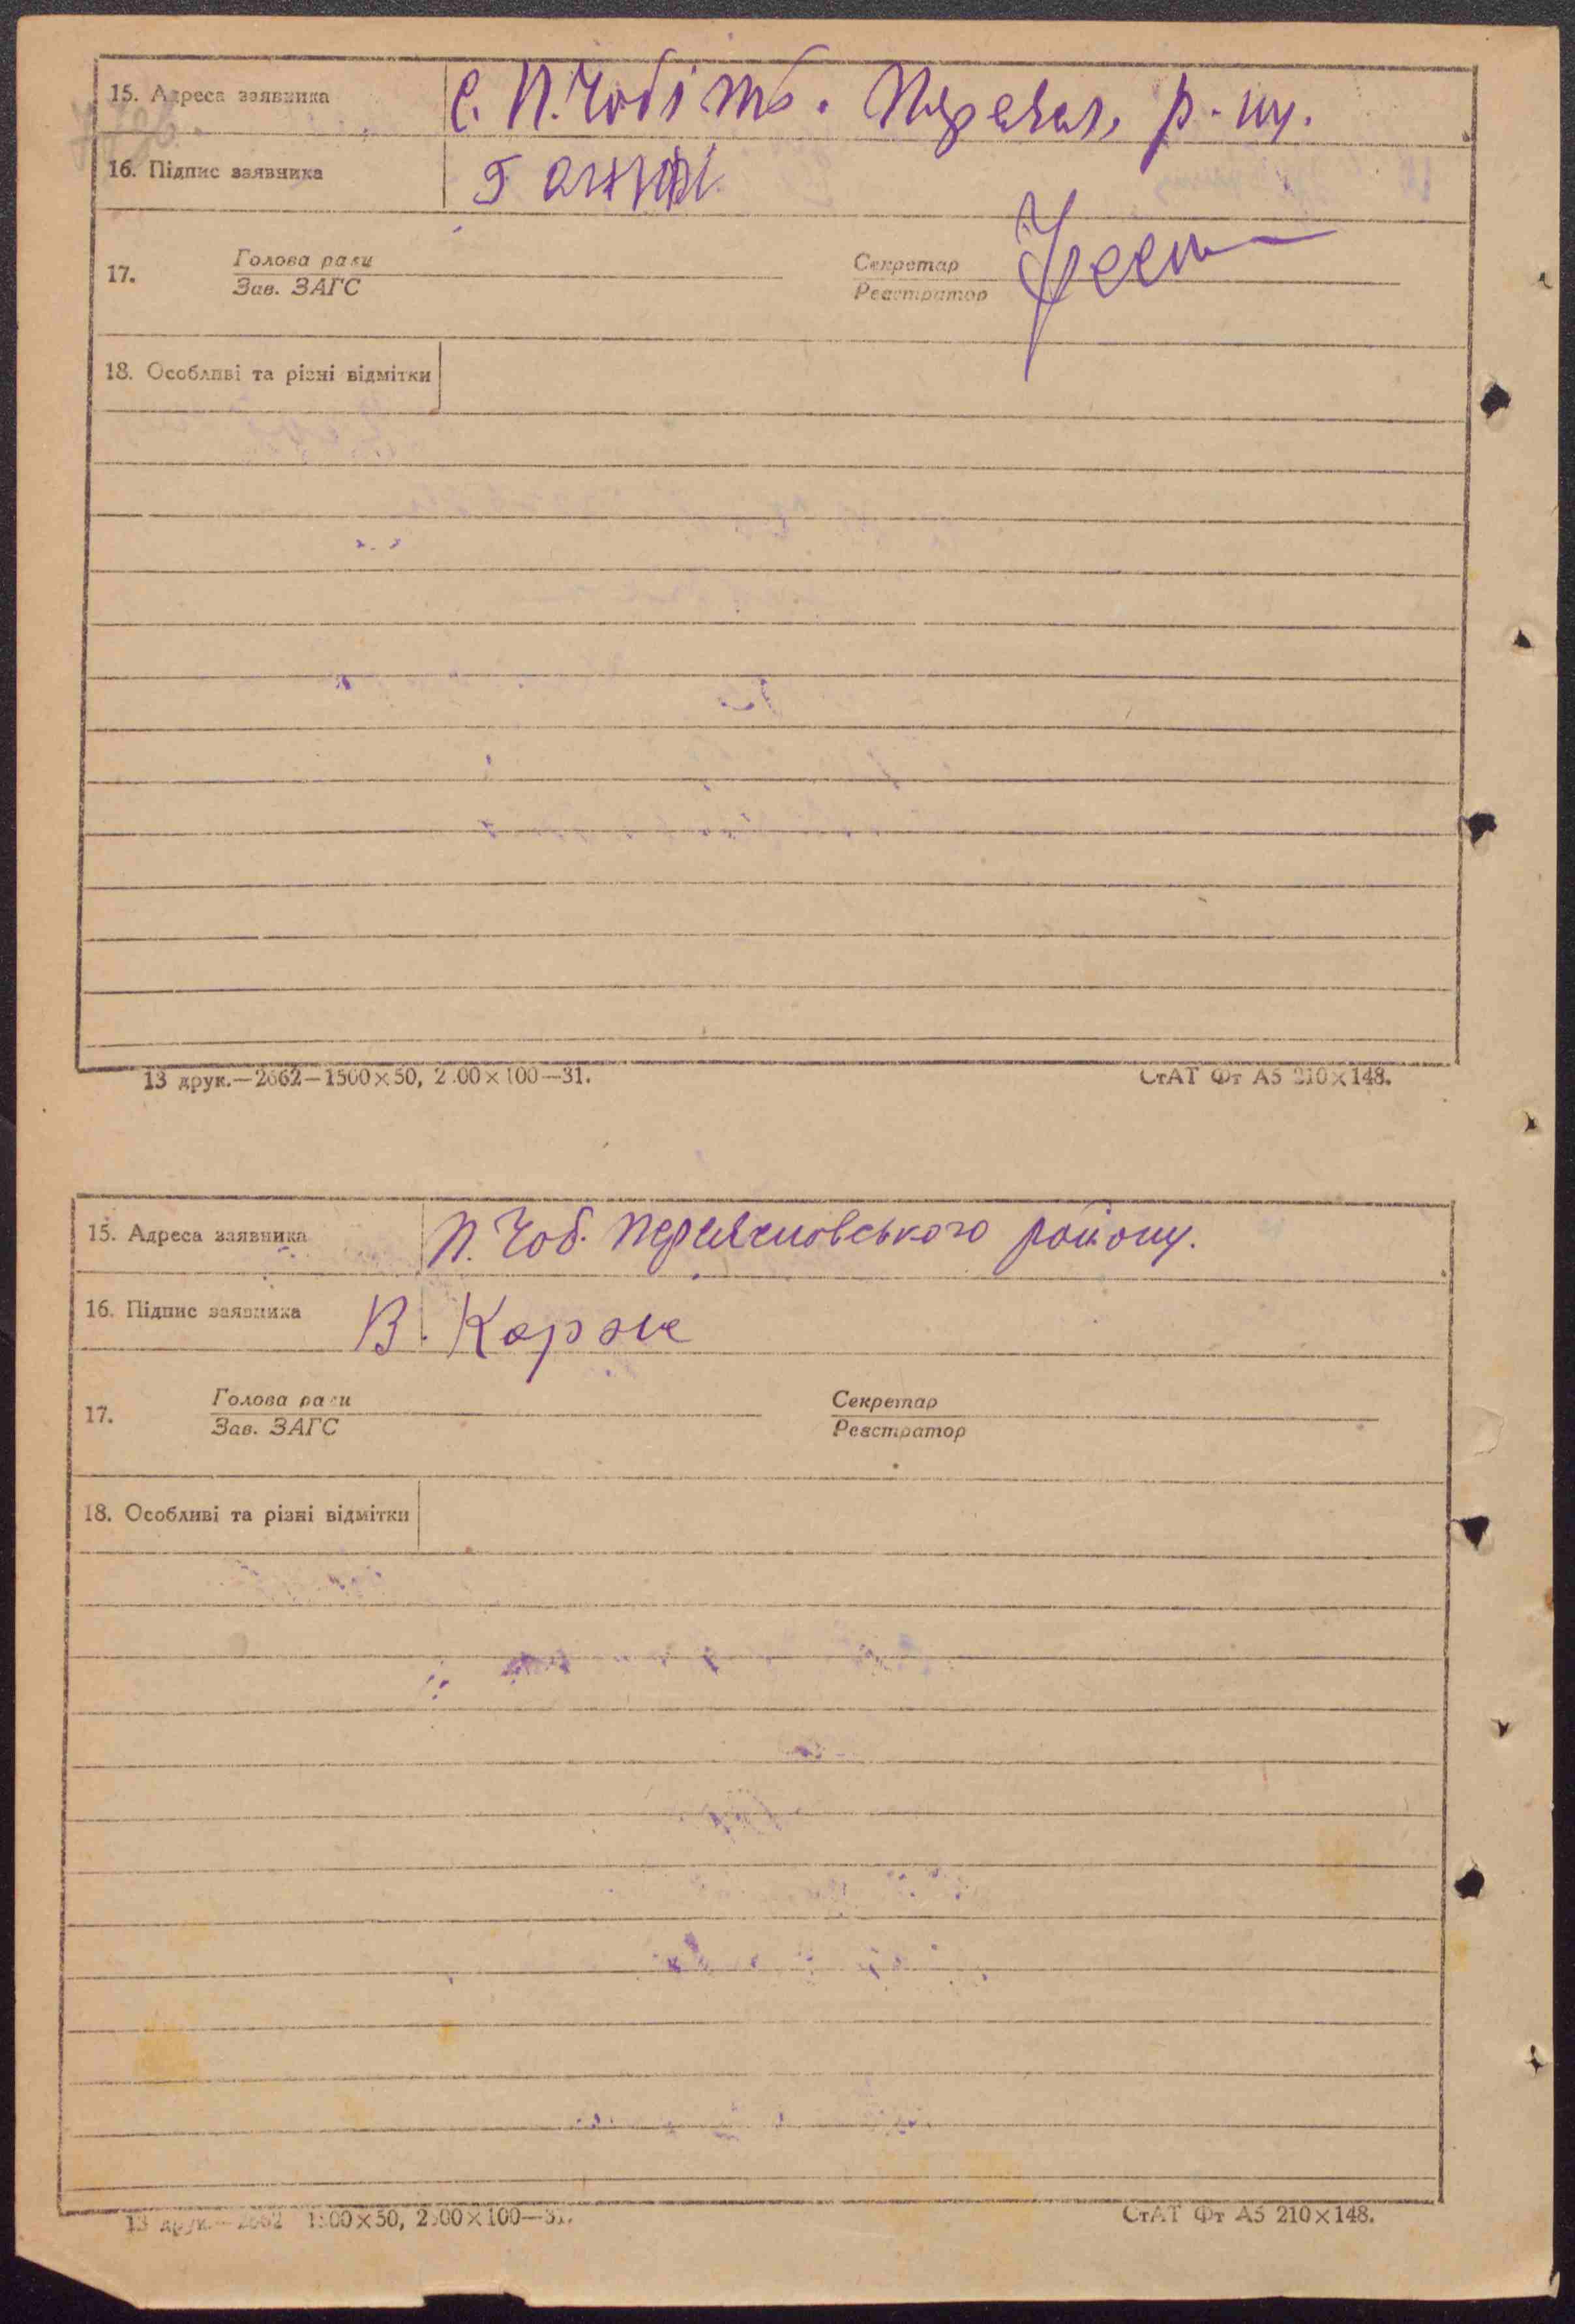 15. Адреса заявника с. П. Чобіть. р-ну.
16. Підпис заявника
17. Голова ради Секретар
Зав. ЗАГС Реєстратор
18. Особливі та різні відмітки
13 друк.—2662—1500×50, 2 00×100—31. СтАТ Фт А5 210×148.
15. Адреса заявника П. Чоб. району.
16. Підпис заявника В. Корж
17. Голова ради Секретар
Зав. ЗАГС Реєстратор
18. Особливі та різні відмітки
13 друк.—2662 1500×50, 2500×100—31. СтАТ Фт А5 210×148.